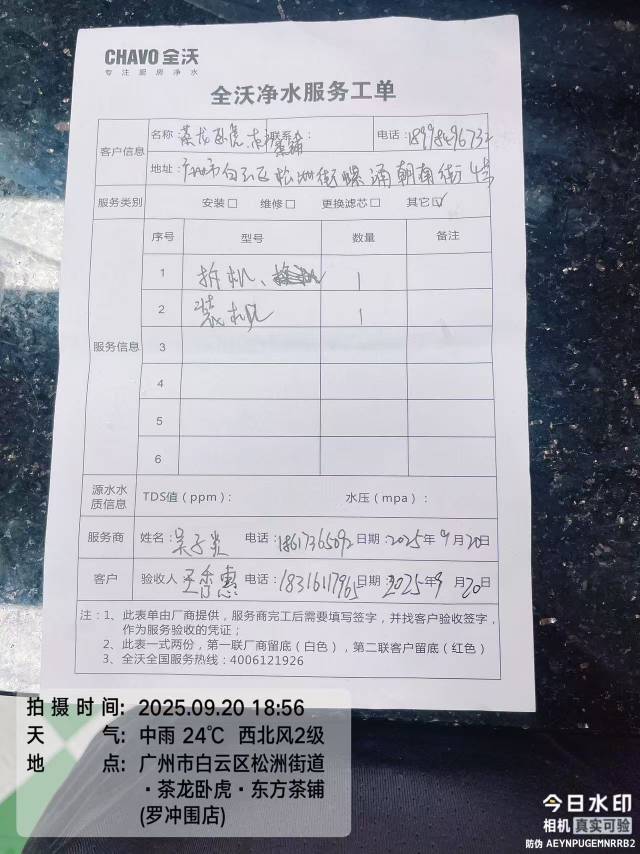 CHAVO 全沃
专注厨房净水
全沃净水服务工单
客户信息
名称 茶龙卧虎 东方茶铺 联系人： 电话：18998496732
地址：广州市白云区松洲街螺涌朝南街4号
服务类别 安装□ 维修□ 更换滤芯□ 其它☑
服务信息
序号 型号 数量 备注
1 拆机、 1
2 装机 1
3
4
5
6
源水水质信息 TDS值（ppm）： 水压（mpa）：
服务商 姓名：吴子 电话：18617365092 日期：2025年9月20日
客户 验收人 王香惠 电话：18316117965 日期：2025年9月20日
注：1、此表单由厂商提供，服务商完工后需要填写签字，并找客户验收签字，
作为服务验收的凭证；
2、此表一式两份，第一联厂商留底（白色），第二联客户留底（红色）
3、全沃全国服务热线：4006121926
拍摄时间：2025.09.20 18:56
天 气：中雨 24℃ 西北风2级
地 点：广州市白云区松洲街道
·茶龙卧虎·东方茶铺
(罗冲围店)
今日水印
相机 真实可验
防伪 AEYNPUGEMNRRB2